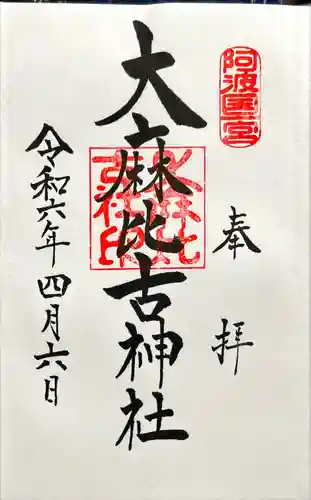 阿波國一宮
奉拝
大麻比古神社
令和六年四月六日